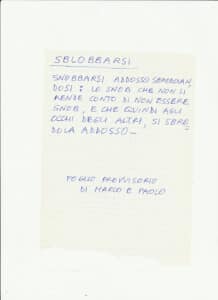 SBLOBBARSI
SNOBBARSI ADDOSSO SBRODOLAN
DOSI : LO SNOB CHE NON SI
RENDE CONTO DI NON ESSERE
SNOB, E CHE QUINDI AGLI
OCCHI DEGLI ALTRI, SI SBRO
DOLA ADDOSSO –
FOGLIO PROVVISORIO
DI MARCO E PAOLO